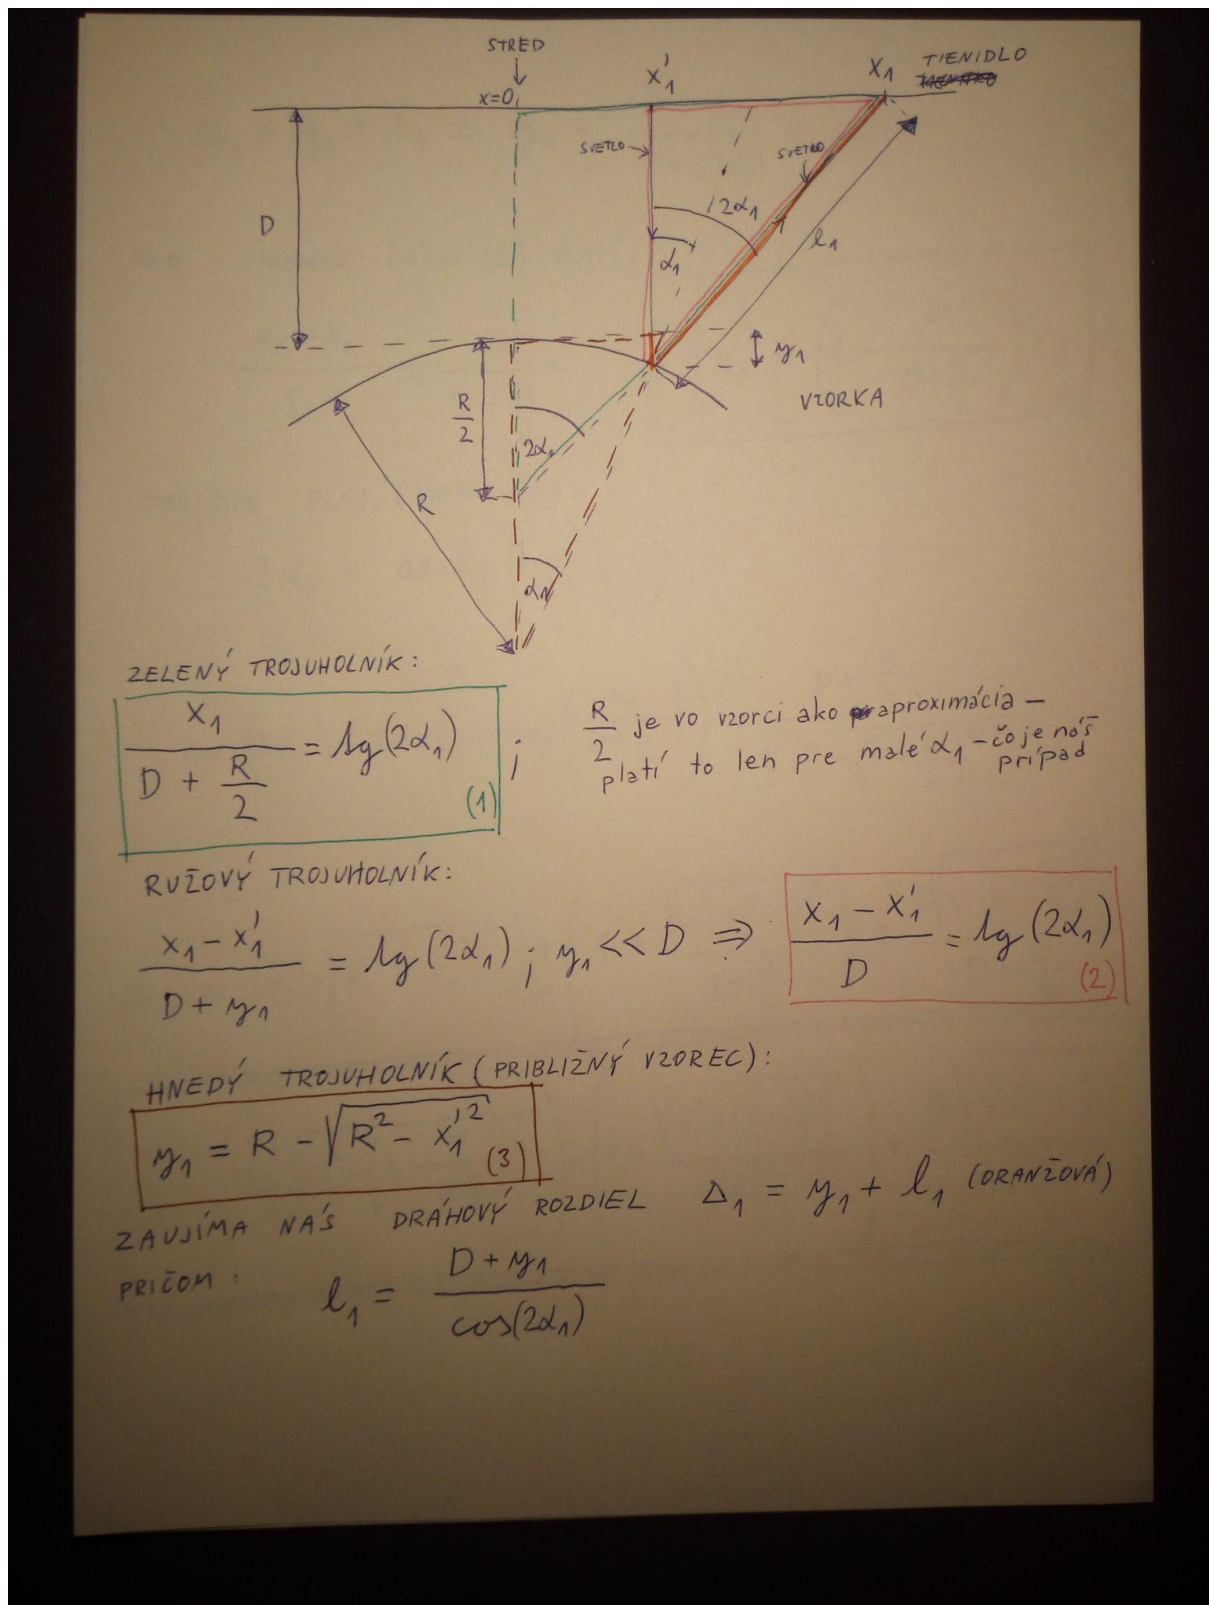 STRED
x=0
x₁'
x₁
TIENIDLO
SVETLO
SVETLO
D
2α₁
α₁
l₁
y₁
R/2
2α₁
VZORKA
R
α₁
ZELENÝ TROJUHOLNÍK:
x₁ / (D + R/2) = tg(2α₁) (1) ;
R/2 je vo vzorci ako aproximácia –
platí to len pre malé α₁ – čo je náš
prípad
RUŽOVÝ TROJUHOLNÍK:
(x₁ – x₁') / (D + y₁) = tg(2α₁) ; y₁ << D ⇒ (x₁ – x₁') / D = tg(2α₁) (2)
HNEDÝ TROJUHOLNÍK (PRIBLIŽNÝ VZOREC):
y₁ = R – √(R² – x₁'²) (3)
ZAUJÍMA NÁS DRÁHOVÝ ROZDIEL Δ₁ = y₁ + l₁ (ORANŽOVÁ)
PRIČOM:
l₁ = (D + y₁) / cos(2α₁)